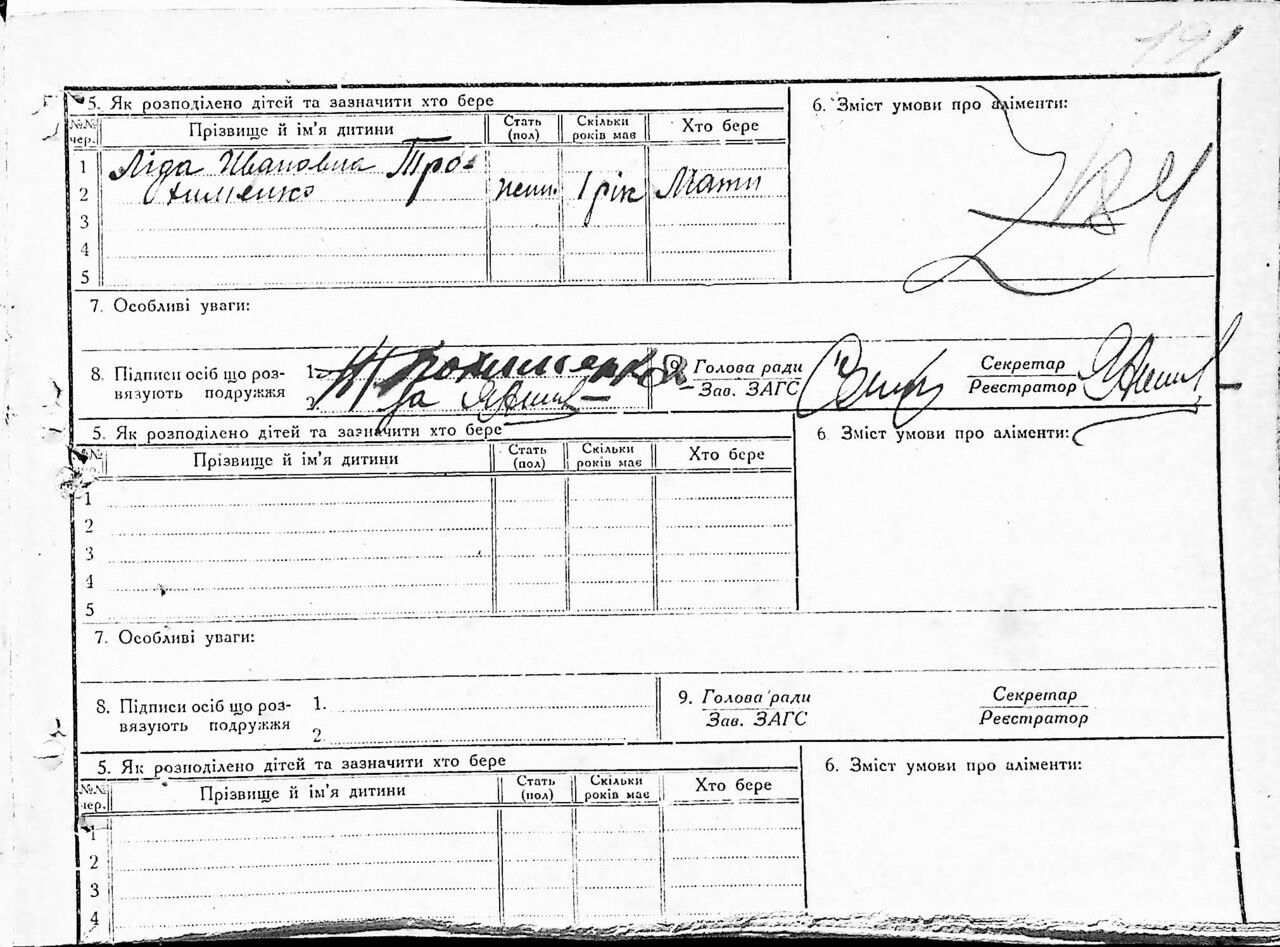 5. Як розподілено дітей та зазначити хто бере
6. Зміст умови про аліменти:
№№ чер. Прізвище й ім'я дитини Стать (пол) Скільки років має Хто бере
1 Ліда Ивановна Тро-
2 химменко женш. 1 рік Мати
3
4
5
7. Особливі уваги:
8. Підписи осіб що роз-
вязують подружжя
1. Трохименко
2 за
9. Голова ради
Зав. ЗАГС
Секретар
Реєстратор
5. Як розподілено дітей та зазначити хто бере
6. Зміст умови про аліменти:
№№ чер. Прізвище й ім'я дитини Стать (пол) Скільки років має Хто бере
1
2
3
4
5
7. Особливі уваги:
8. Підписи осіб що роз-
вязують подружжя
1.
2
9. Голова ради
Зав. ЗАГС
Секретар
Реєстратор
5. Як розподілено дітей та зазначити хто бере
6. Зміст умови про аліменти:
№№ чер. Прізвище й ім'я дитини Стать (пол) Скільки років має Хто бере
1
2
3
4